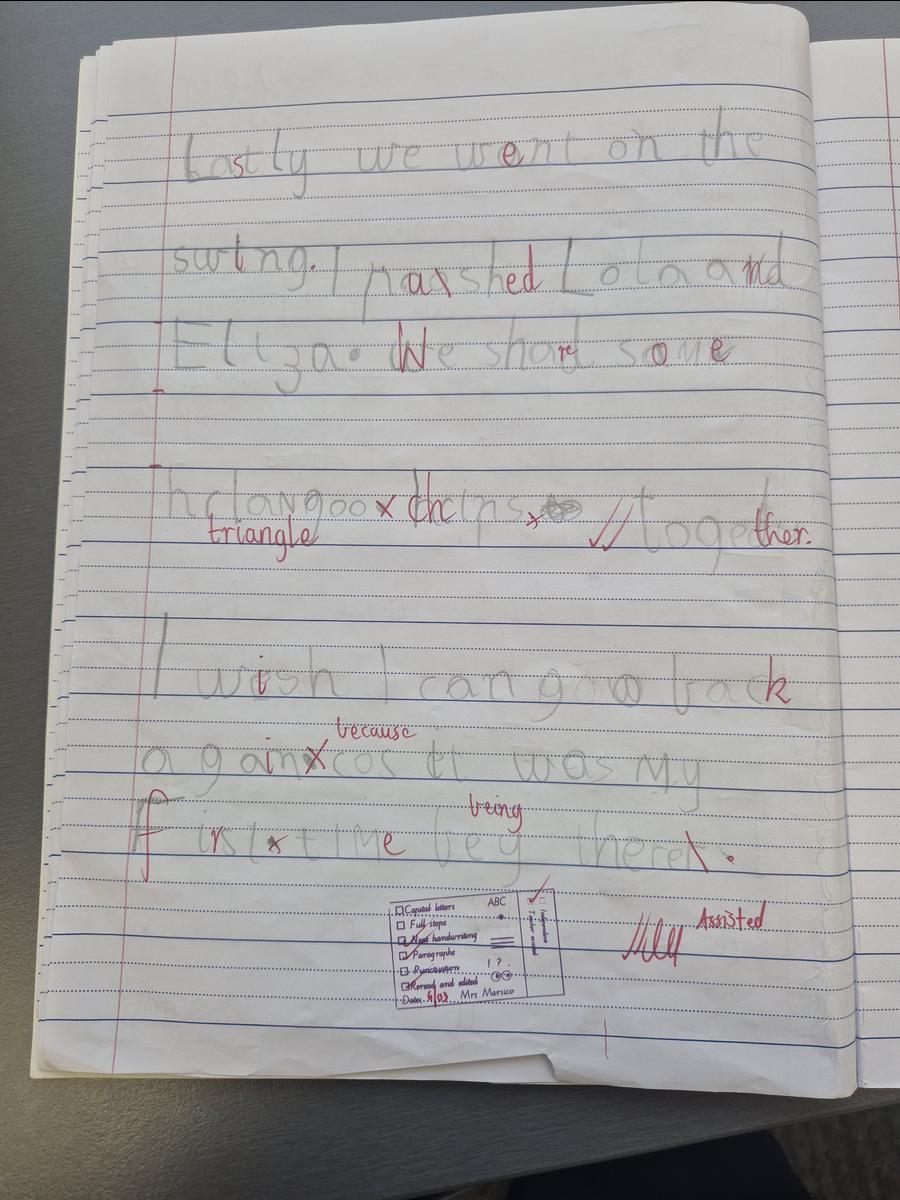 Lastly we went on the
swing. I pushed Lola and
Eliza. We shared some
triangle chips together.
I wish I can go back
because
again cos it was my
being
First time bey there.
Assisted
Capital letters ABC
Full stops
Neat handwriting
Paragraphs
Punctuation ! ?
Reread and edited
Date: 6/03 Mrs Marsico
Independent
Teacher assisted